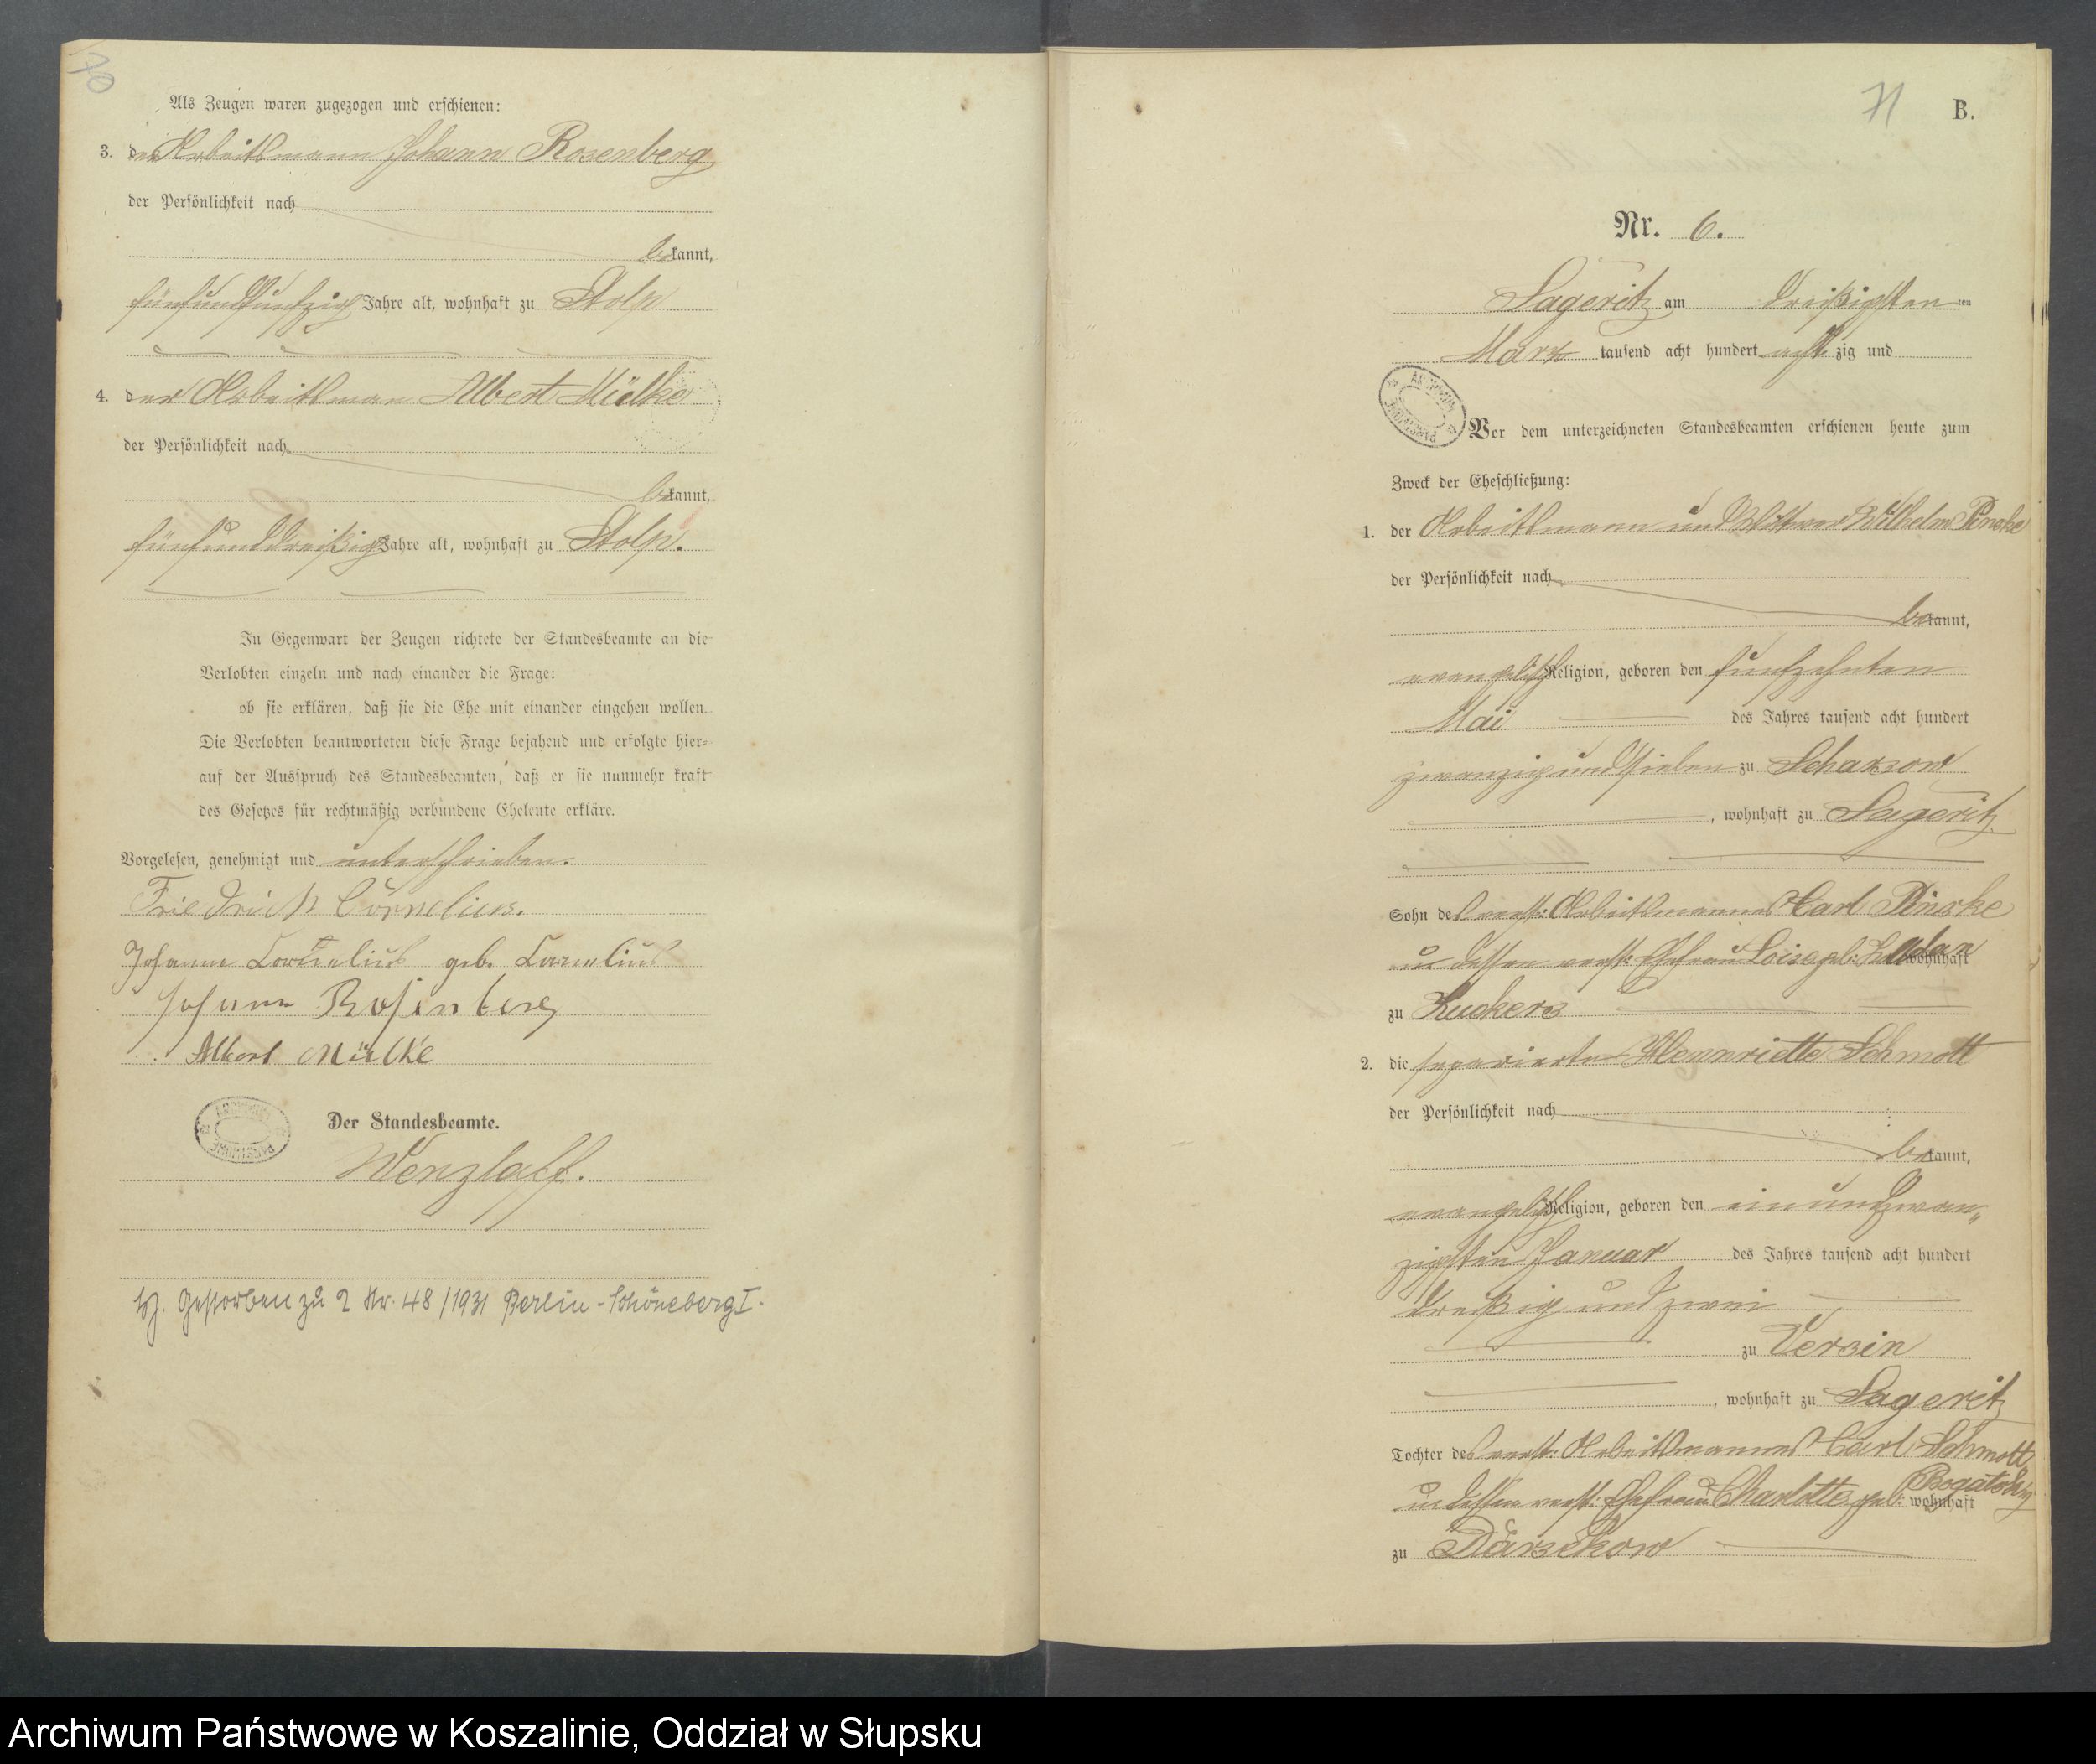 70
Als Zeugen waren zugezogen und erschienen:
3. der Arbeitsmann Johann Rosenberg
der Persönlichkeit nach
bekannt,
fünfundfünfzig Jahre alt, wohnhaft zu Stolp
4. der Arbeitsman Albert Mielke
der Persönlichkeit nach
bekannt,
fünfunddreißig Jahre alt, wohnhaft zu Stolp.
In Gegenwart der Zeugen richtete der Standesbeamte an die
Verlobten einzeln und nach einander die Frage:
ob sie erklären, daß sie die Ehe mit einander eingehen wollen.
Die Verlobten beantworteten diese Frage bejahend und erfolgte hier-
auf der Ausspruch des Standesbeamten, daß er sie nunmehr kraft
des Gesetzes für rechtmäßig verbundene Eheleute erkläre.
Vorgelesen, genehmigt und unterschrieben.
Friedrich Cornelius.
Johanne Cornelius geb. Cornelius
Johann Rosenberg
Albert Mielke
Der Standesbeamte.
Wenzlaff.
Gestorben zu 2 Nr. 48/1931 Berlin-Schöneberg I.
71
B.
Nr. 6.
Lageritz am dreißigsten ten
März tausend acht hundert achtzig und
Vor dem unterzeichneten Standesbeamten erschienen heute zum
Zweck der Eheschließung:
1. der Arbeitsmann und Wittwer Wilhelm Pinske
der Persönlichkeit nach
bekannt,
evangelisch Religion, geboren den fünfzehnten
Mai des Jahres tausend acht hundert
zwanzig und sieben zu Scharsow
, wohnhaft zu Lageritz
Sohn des verst: Arbeitsmannes Carl Pinske
u dessen verst: Ehefrau Loise geb: wohnhaft
zu Kuckers
2. die separierte Hennriette Schmott
der Persönlichkeit nach
bekannt,
evangelisch Religion, geboren den einundzwan„
zigsten Januar des Jahres tausend acht hundert
dreißig und zwei
zu Versin
, wohnhaft zu Lageritz
Tochter des verst: Arbeitsmannes Carl Schmott
u dessen verst: Ehefrau Charlotte geb: Bogatsky wohnhaft
zu Darsekow
Archiwum Państwowe w Koszalinie, Oddział w Słupsku